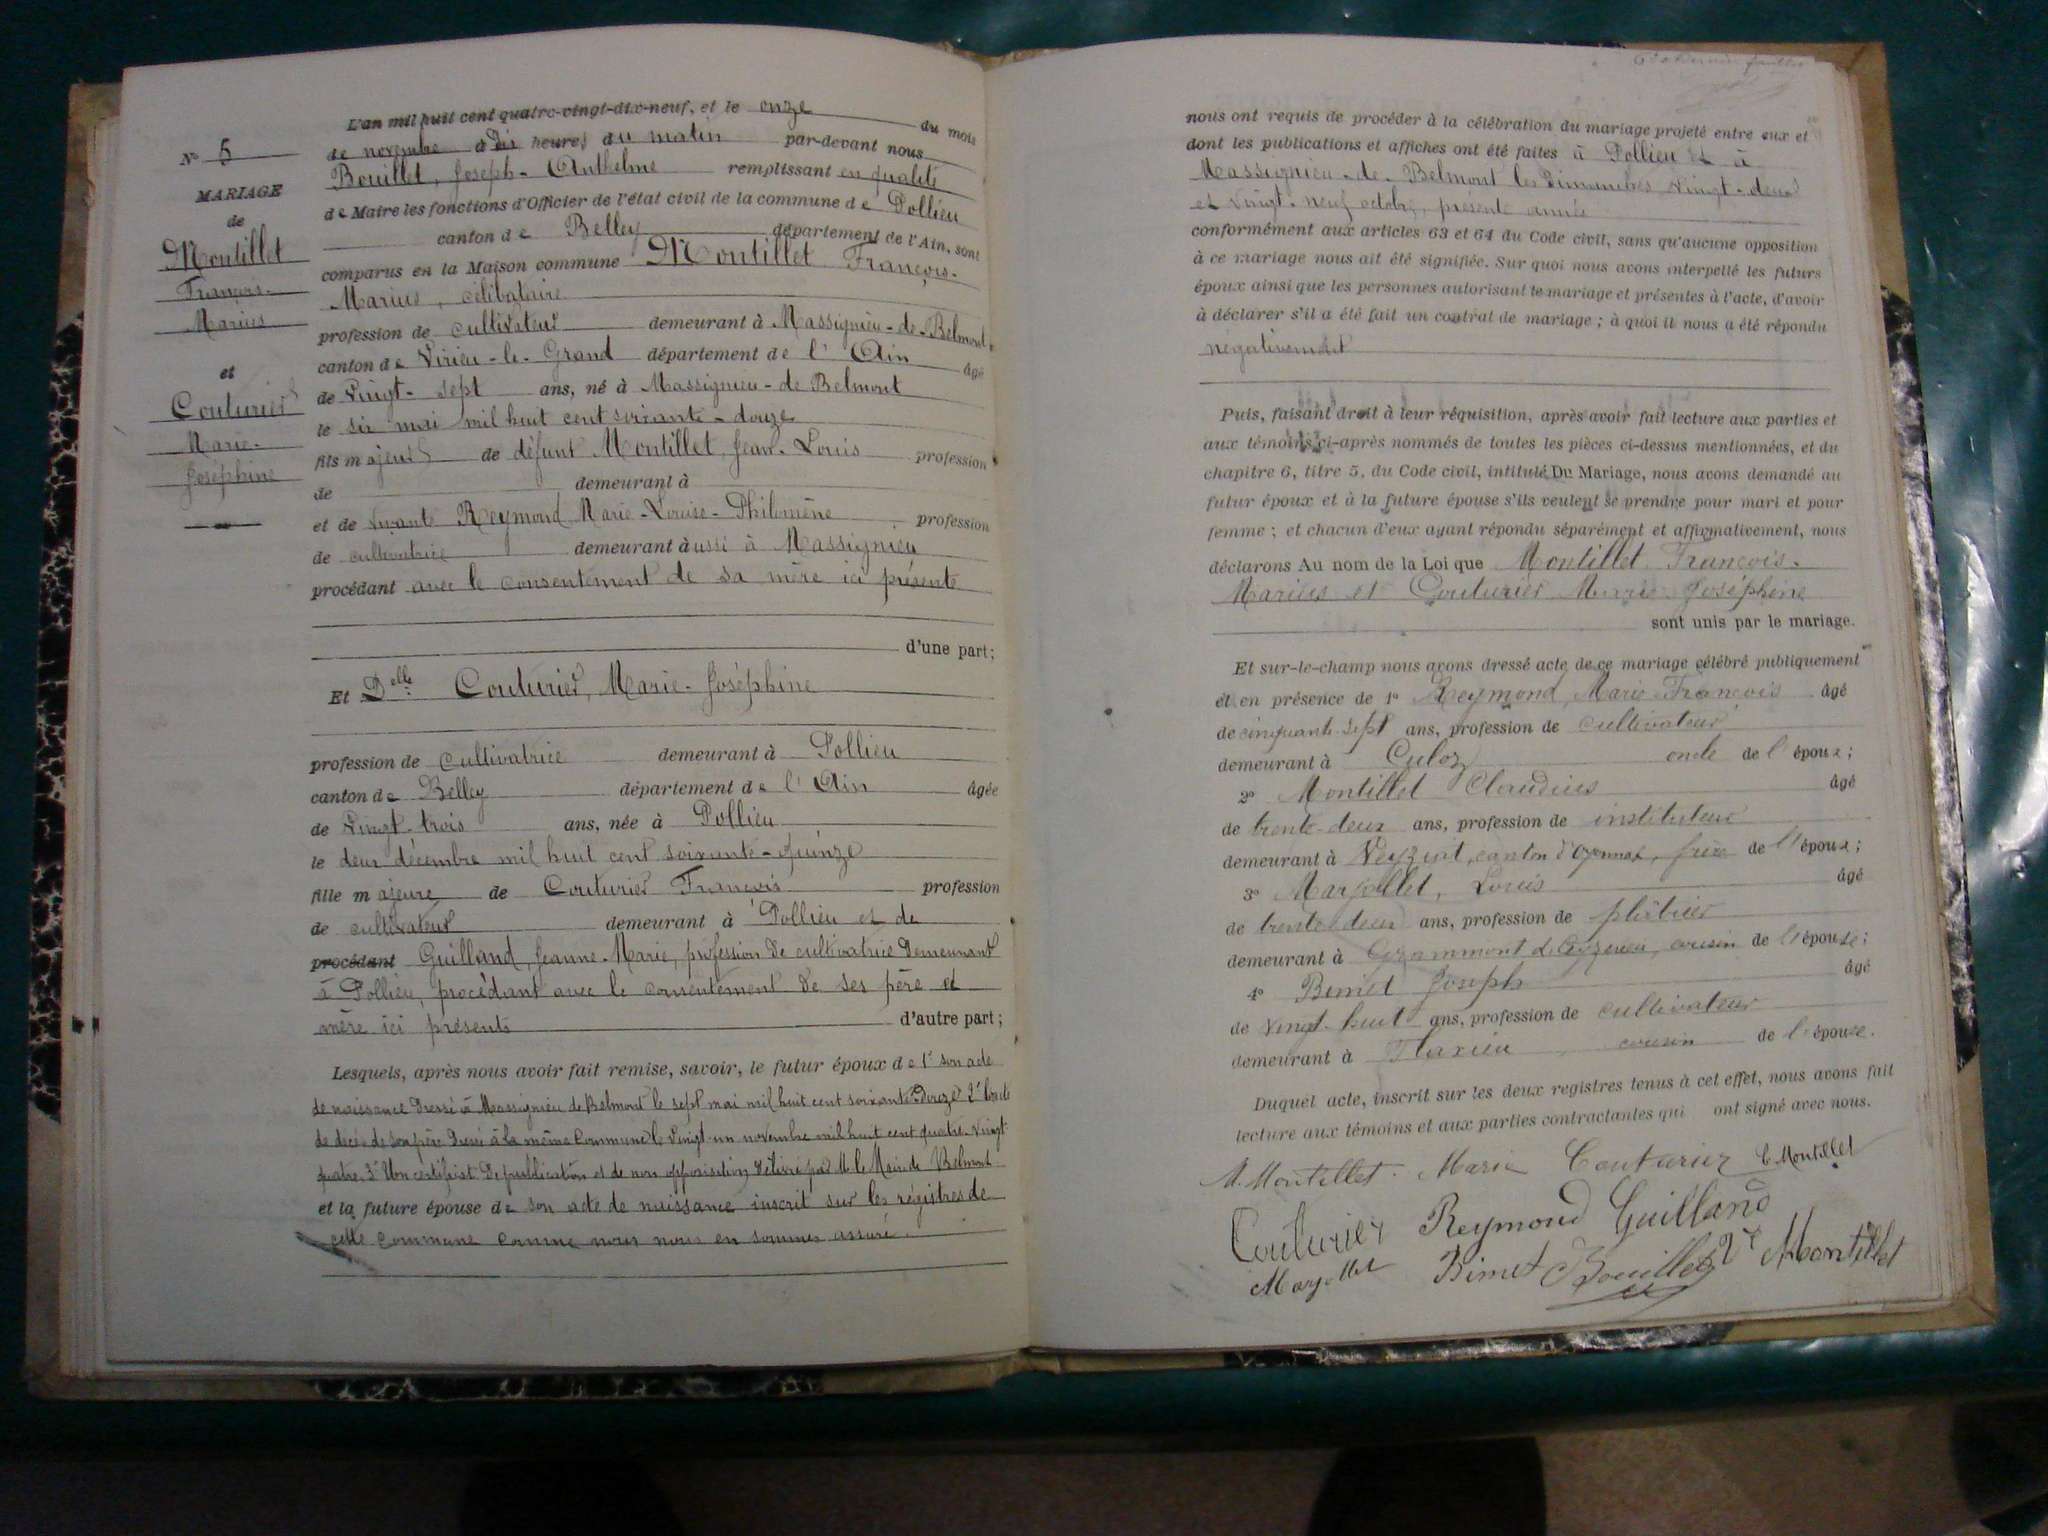 L'an mil huit cent quatre-vingt-dix-neuf, et le onze du mois
de novembre à Dix heures du matin par-devant nous
Bouillet, Joseph-Anthelme remplissant en qualité
de Maire les fonctions d'Officier de l'état civil de la commune de Pollieu
canton de Belley département de l'Ain, sont
comparus en la Maison commune Montillet François-
Marius, célibataire
profession de cultivateur demeurant à Massignieu-de-Belmont
canton de Virieu-le-Grand département de l'Ain âgé
de Vingt-sept ans, né à Massignieu-de Belmont
le six mai mil huit cent soixante-douze
fils majeur de défunt Montillet, Jean-Louis profession
de demeurant à
et de vivante Reymond Marie-Louise-Philomène profession
de cultivatrice demeurant aussi à Massignieu
procédant avec le consentement de sa mère ici présente
d'une part;
Et Delle Couturier, Marie-Joséphine
profession de cultivatrice demeurant à Pollieu
canton de Belley département de l'Ain âgée
de Vingt-trois ans, née à Pollieu
le deux décembre mil huit cent soixante-quinze
fille majeure de Couturier François profession
de cultivateur demeurant à Pollieu et de
procédant Guilland, Jeanne-Marie, profession de cultivatrice demeurant
à Pollieu, procédant avec le consentement de ses père et
mère ici présents d'autre part;
Lesquels, après nous avoir fait remise, savoir, le futur époux de 1° son acte
de naissance dressé à Massignieu de Belmont le sept mai mil huit cent soixante-Douze 2° l'acte
de décès de son père dressé à la même Commune le Vingt-un novembre mil huit cent quatre-Vingt
quatre 3° Un certificat de publication et de non opposition délivré par M. le Maire de Belmont
et la future épouse de son acte de naissance inscrit sur les régistres de
cette commune comme nous nous en sommes assuré.
N° 5
MARIAGE
de
Montillet
François-
Marius
et
Couturier
Marie-
Joséphine
nous ont requis de procéder à la célébration du mariage projeté entre eux et
dont les publications et affiches ont été faites à Pollieu et à
Massignieu-de-Belmont les Dimanches Vingt-deux
et Vingt-neuf octobre, présente année
conformément aux articles 63 et 64 du Code civil, sans qu'aucune opposition
à ce mariage nous ait été signifiée. Sur quoi nous avons interpellé les futurs
époux ainsi que les personnes autorisant le mariage et présentes à l'acte, d'avoir
à déclarer s'il a été fait un contrat de mariage; à quoi il nous a été répondu
négativement
Puis, faisant droit à leur réquisition, après avoir fait lecture aux parties et
aux témoins ci-après nommés de toutes les pièces ci-dessus mentionnées, et du
chapitre 6, titre 5, du Code civil, intitulé Du Mariage, nous avons demandé au
futur époux et à la future épouse s'ils veulent se prendre pour mari et pour
femme; et chacun d'eux ayant répondu séparément et affirmativement, nous
déclarons Au nom de la Loi que Montillet François-
Marius et Couturier Marie-Joséphine
sont unis par le mariage.
Et sur-le-champ nous avons dressé acte de ce mariage célébré publiquement
et en présence de 1° Reymond, Marie-François âgé
de cinquante-sept ans, profession de cultivateur
demeurant à Culoz oncle de l'époux;
2° Montillet Claudius âgé
de trente-deux ans, profession de instituteur
demeurant à Veyziat, canton d'Oyonnax, frère de l'époux;
3° Marjollet, Louis âgé
de trente-deux ans, profession de plâtrier
demeurant à Grammont de Ceyzerieu, cousin de l'épouse;
4° Bimet Joseph âgé
de Vingt-huit ans, profession de cultivateur
demeurant à Flaxieu, cousin de l'épouse.
Duquel acte, inscrit sur les deux registres tenus à cet effet, nous avons fait
lecture aux témoins et aux parties contractantes qui ont signé avec nous.
M. Montillet. Marie Couturier C. Montillet
Couturier Reymond Guilland
Marjollet Bimet Bouillet Ve Montillet